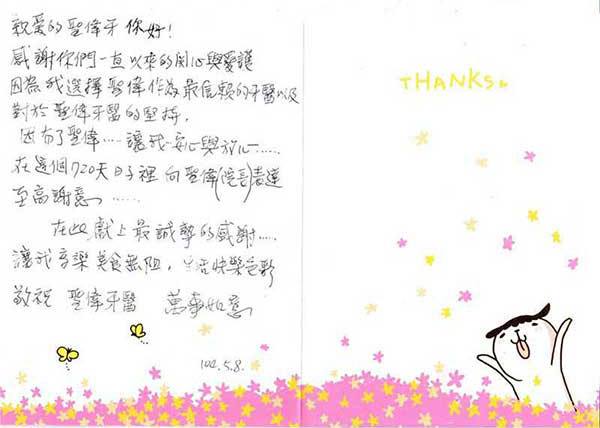 親愛的聖偉牙你好!
感謝你們一直以來的用心與愛護
因為我選擇聖偉作為最信賴的牙醫以及
對於聖偉牙醫的堅持,
因有了聖偉……讓我安心與放心……
在這個720天日子裡向聖偉(院長)表達
至高謝意……
在此獻上最誠摯的感謝……
讓我享樂美食無阻,生活快樂色彩
敬祝 聖偉牙醫 萬事如意
102.5.8.
THANKS